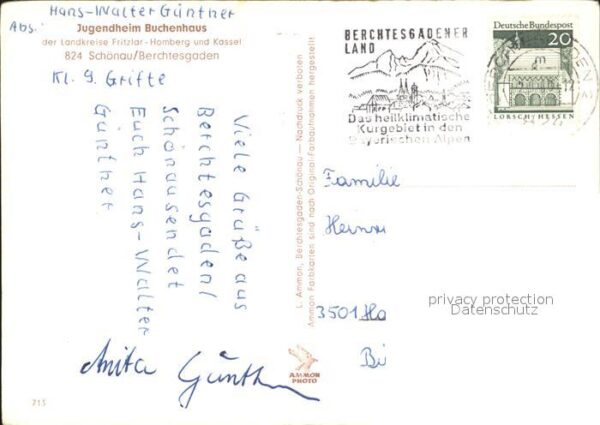 Hans-Walter Günther
Abs.:
Jugendheim Buchenhaus
der Landkreise Fritzlar-Homberg und Kassel
824 Schönau/Berchtesgaden
Kl. 9. Grifte
Viele Grüße aus
Berchtesgaden/
Schönau sendet
Euch Hans-Walter
Günther
Anita Günther
713
L. Ammon, Berchtesgaden-Schönau — Nachdruck verboten
Ammon Farbkarten sind nach Original-Farbaufnahmen hergestellt
AMMON
PHOTO
BERCHTESGADENER
LAND
Das heilklimatische
Kurgebiet in den
Bayerischen Alpen
Deutsche Bundespost
20
LORSCH/HESSEN
Familie
3501 Ho
privacy protection
Datenschutz